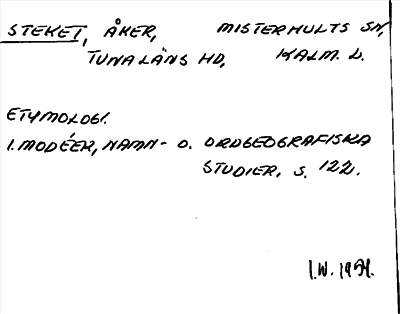 STEKET, ÅKER, MISTERHULTS SN,
TUNALÄNS HD, KALM. L.
ETYMOLOGI.
I. MODÉER, NAMN- O. ORDGEOGRAFISKA
STUDIER, S. 122.
I.W. 1954.